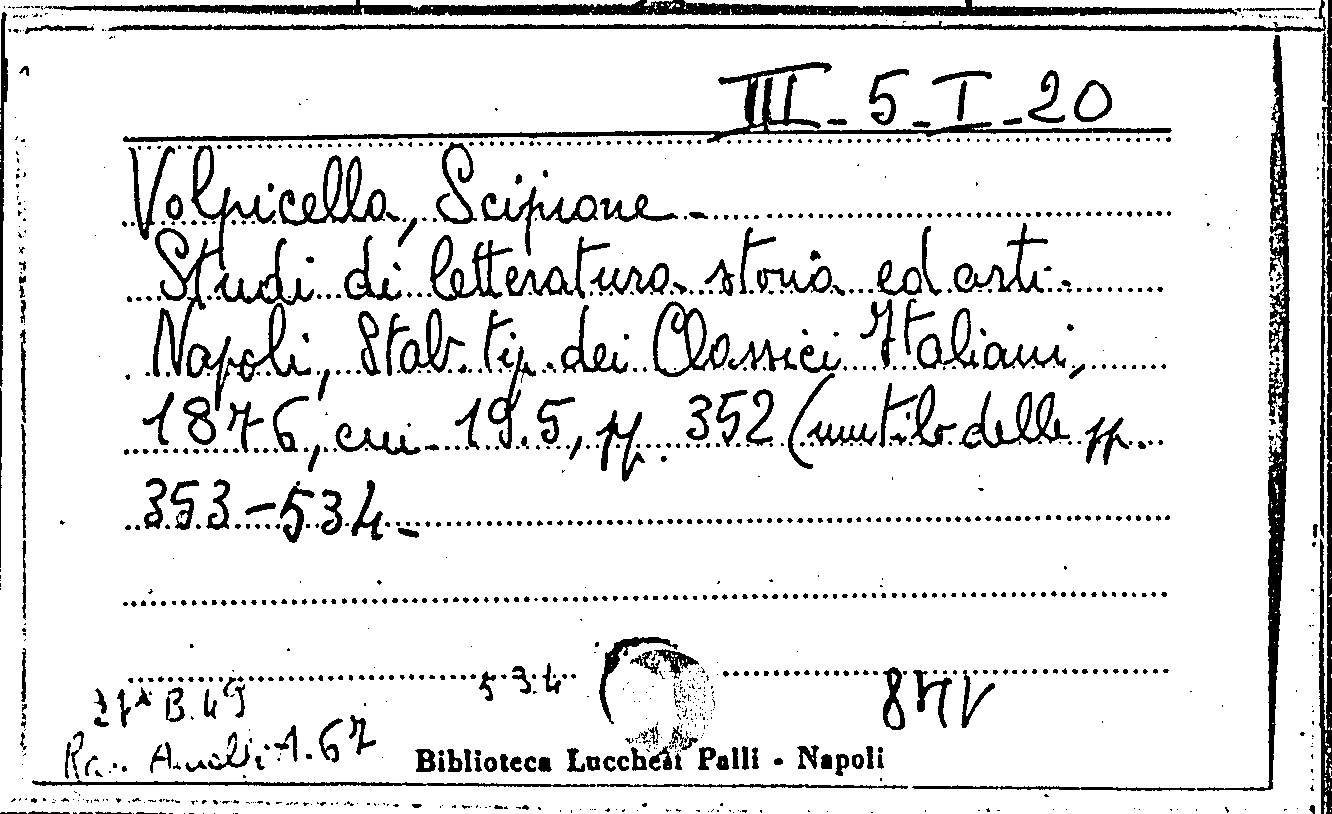 III - 5 - I - 20
Volpicella, Scipione -
Studi di letteratura storia ed arti.
Napoli, Stab. tip. dei Classici Italiani,
1876, cm. 19.5, pp. 352 (mutilo delle pp.
353-534 -
534
B. 49
A. 67
Biblioteca Lucchesi Palli - Napoli